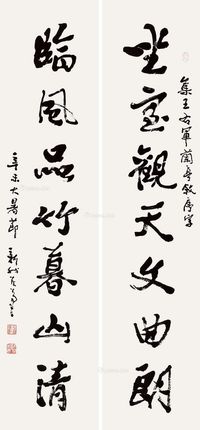 集王右軍蘭亭敘序字
坐室觀天文曲朗
臨風品竹暮山清
辛未大暑節
新我左